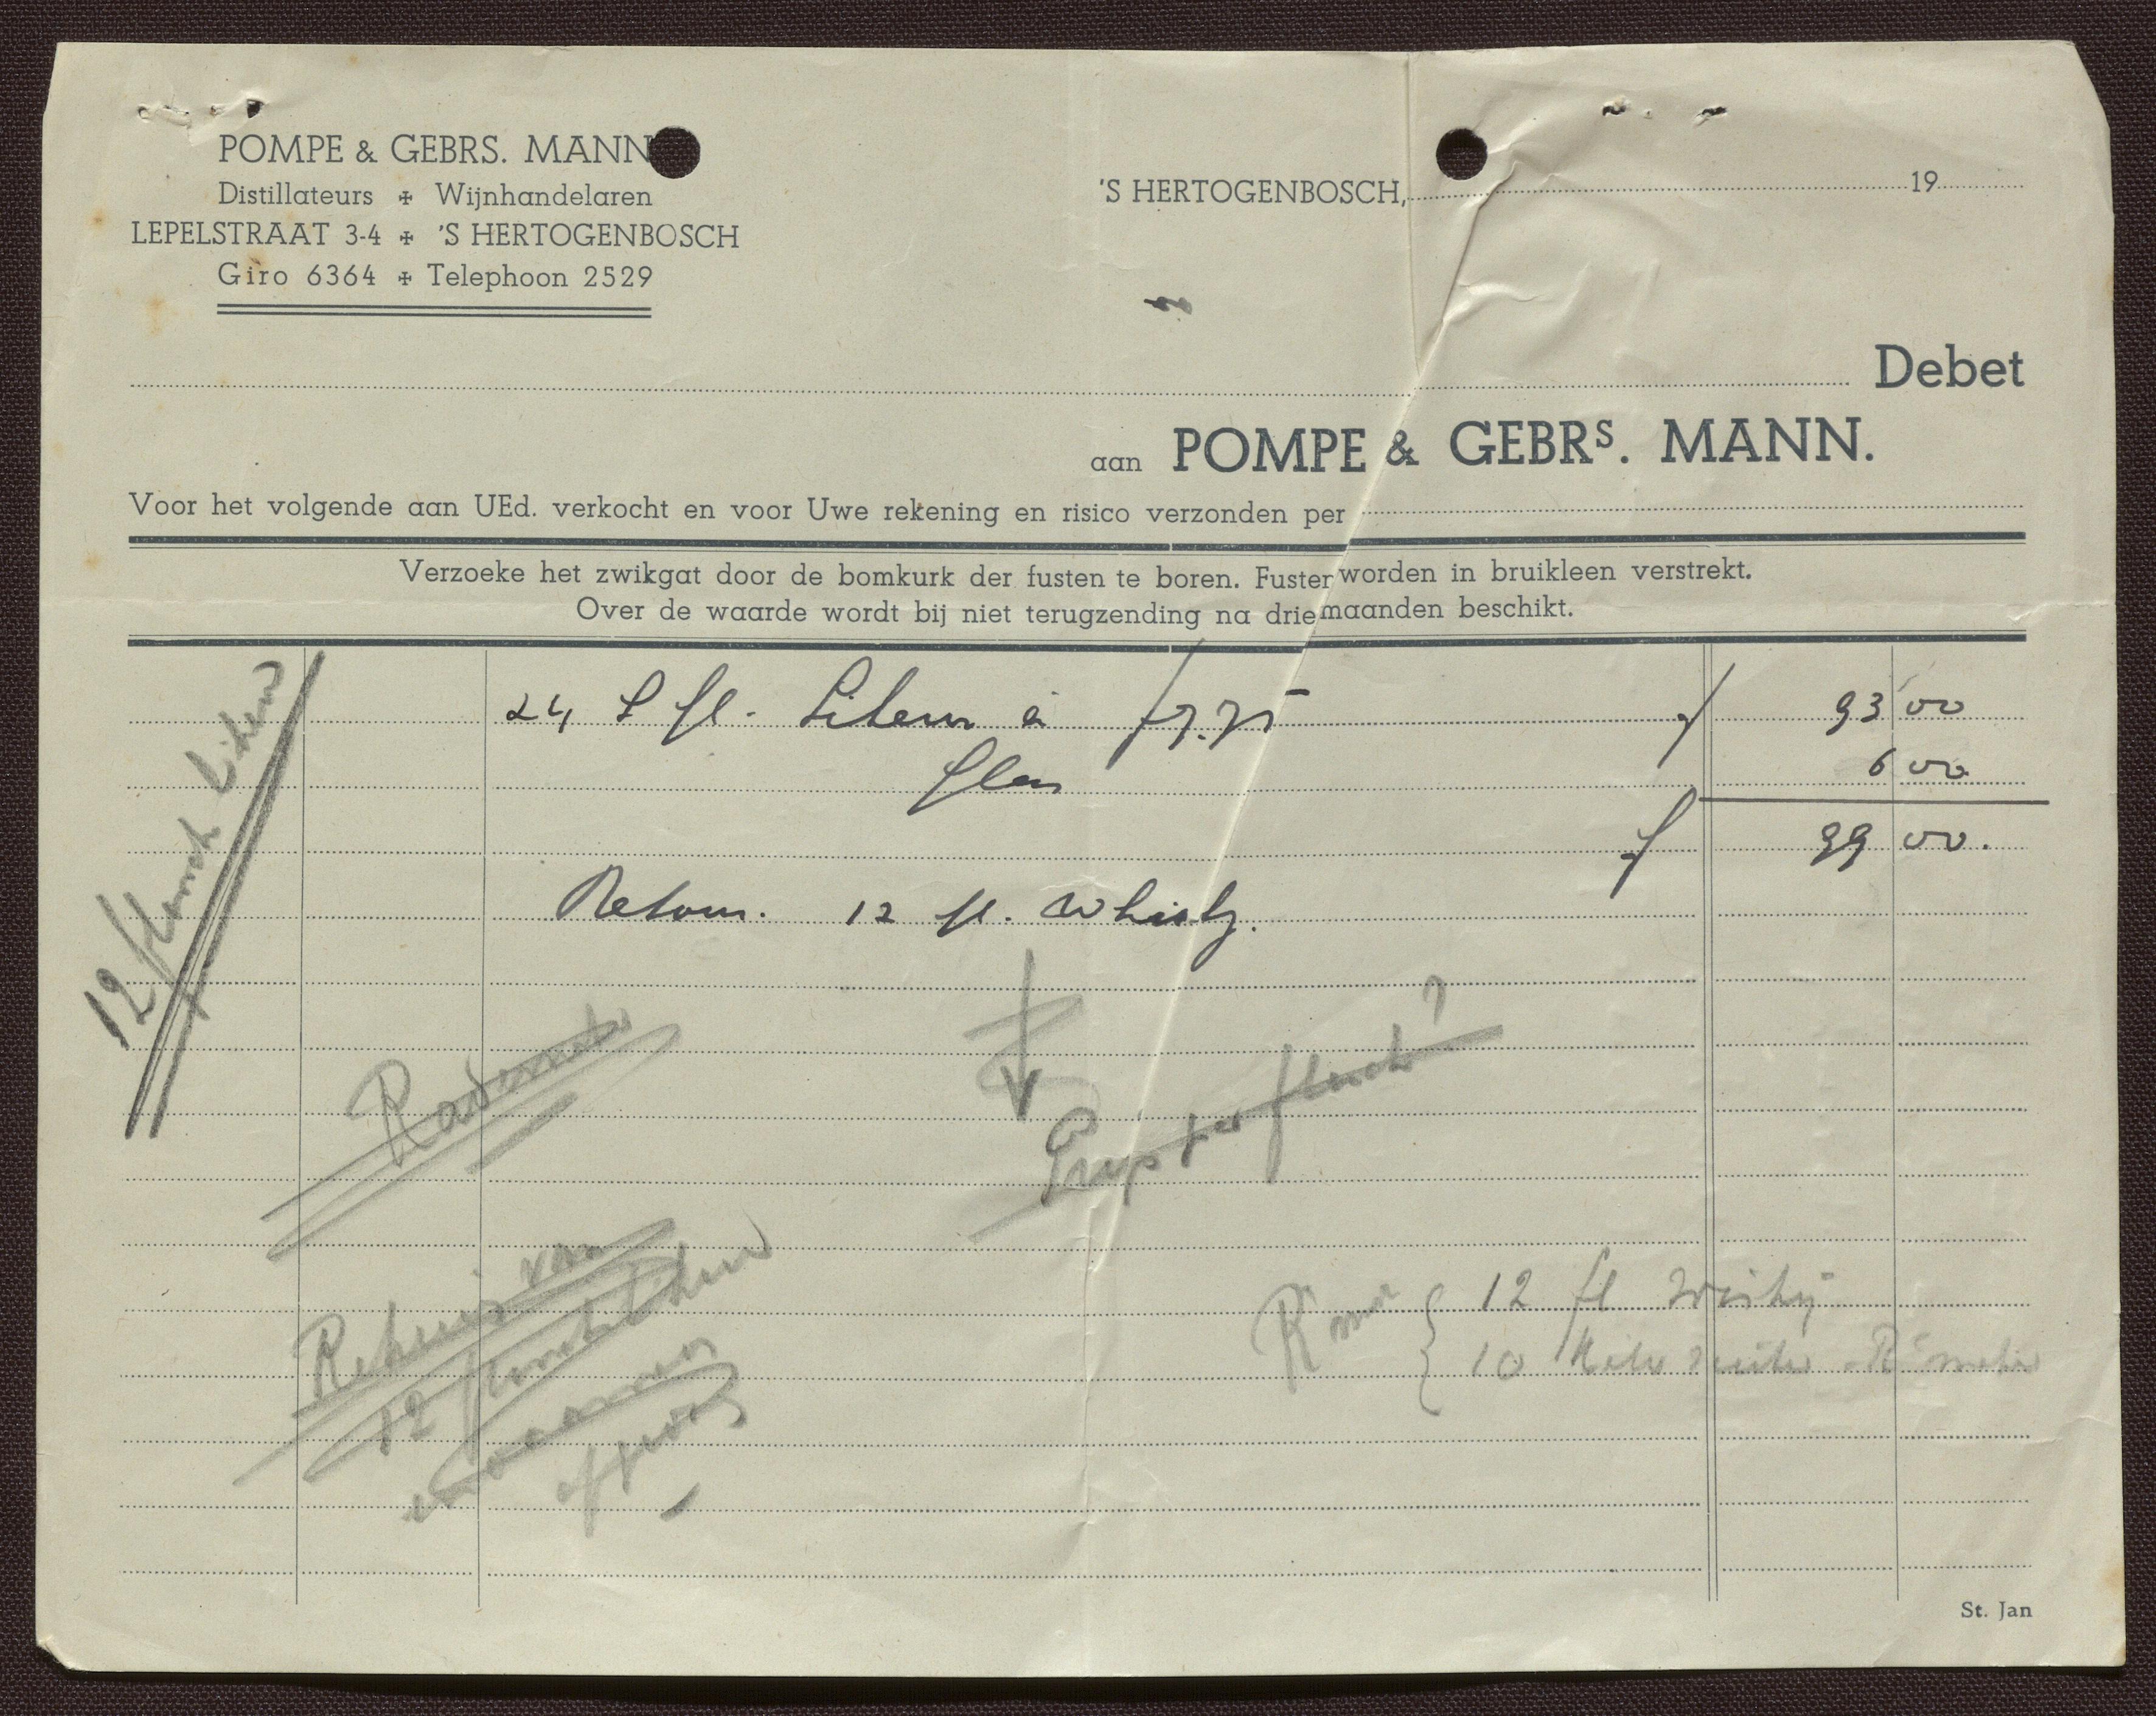 POMPE & GEBRS. MANN
Distillateurs ✠ Wijnhandelaren
LEPELSTRAAT 3-4 ✠ 'S HERTOGENBOSCH
Giro 6364 ✠ Telephoon 2529
'S HERTOGENBOSCH, 19
Debet
aan POMPE & GEBRS. MANN.
Voor het volgende aan UEd. verkocht en voor Uwe rekening en risico verzonden per
Verzoeke het zwikgat door de bomkurk der fusten te boren. Fusten worden in bruikleen verstrekt.
Over de waarde wordt bij niet terugzending na drie maanden beschikt.
24 fl. Likeur à f 7.75 f 93 00
glas 6 00
f 99 00.
Retour. 12 fl. Whisky.
12 flesch Likeur
Prijs per flesch?
van
12 flesch
12 fl Wisky
10 Kilo
St. Jan